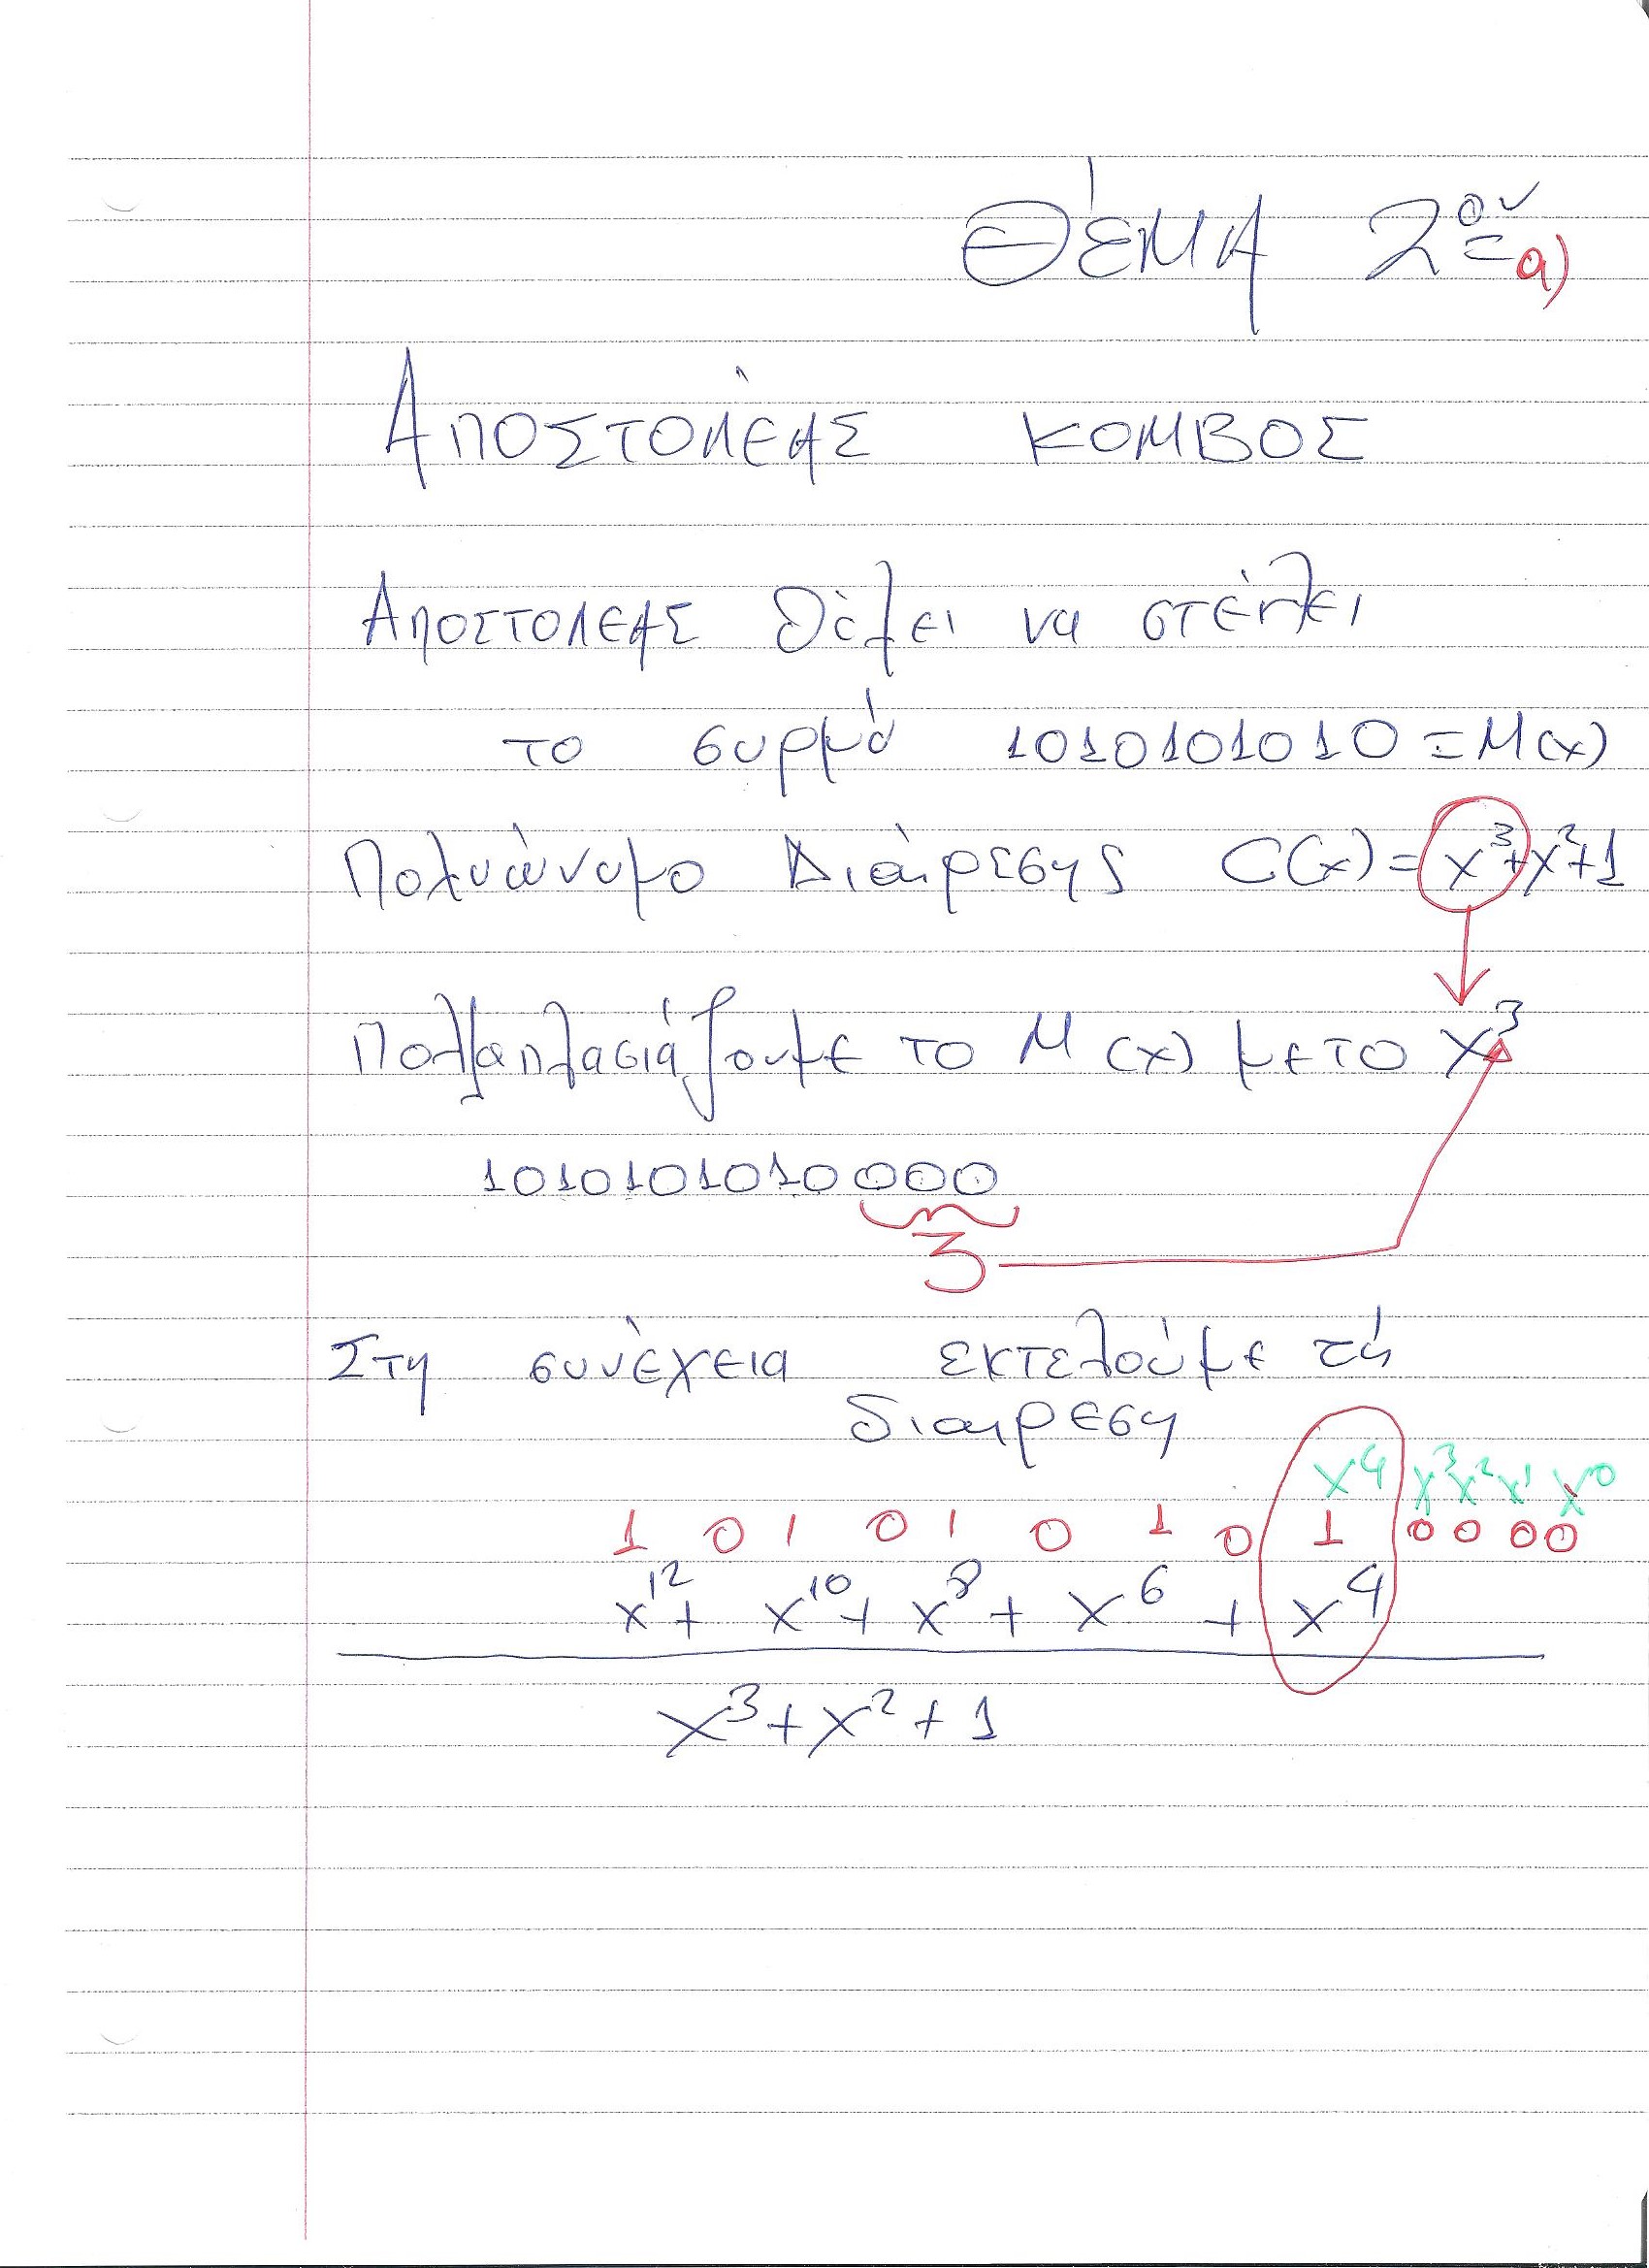 ΘΈΜΑ 2ον α)
ΑΠΟΣΤΟΛΈΑΣ ΚΟΜΒΟΣ
ΑΠΟΣΤΟΛΕΑΣ θέλει να στείλει
το συρμό 1010101010 = M(x)
Πολυώνυμο Διαίρεσης C(x) = x³+x²+1
Πολλαπλασιάζουμε το M(x) με το x³
1010101010000
3
Στη συνέχεια εκτελούμε τή
διαιρεση
x⁴ x³ x² x¹ x⁰
1 0 1 0 1 0 1 0 1 0 0 0 0
x¹² + x¹⁰ + x⁸ + x⁶ + x⁴
x³ + x² + 1